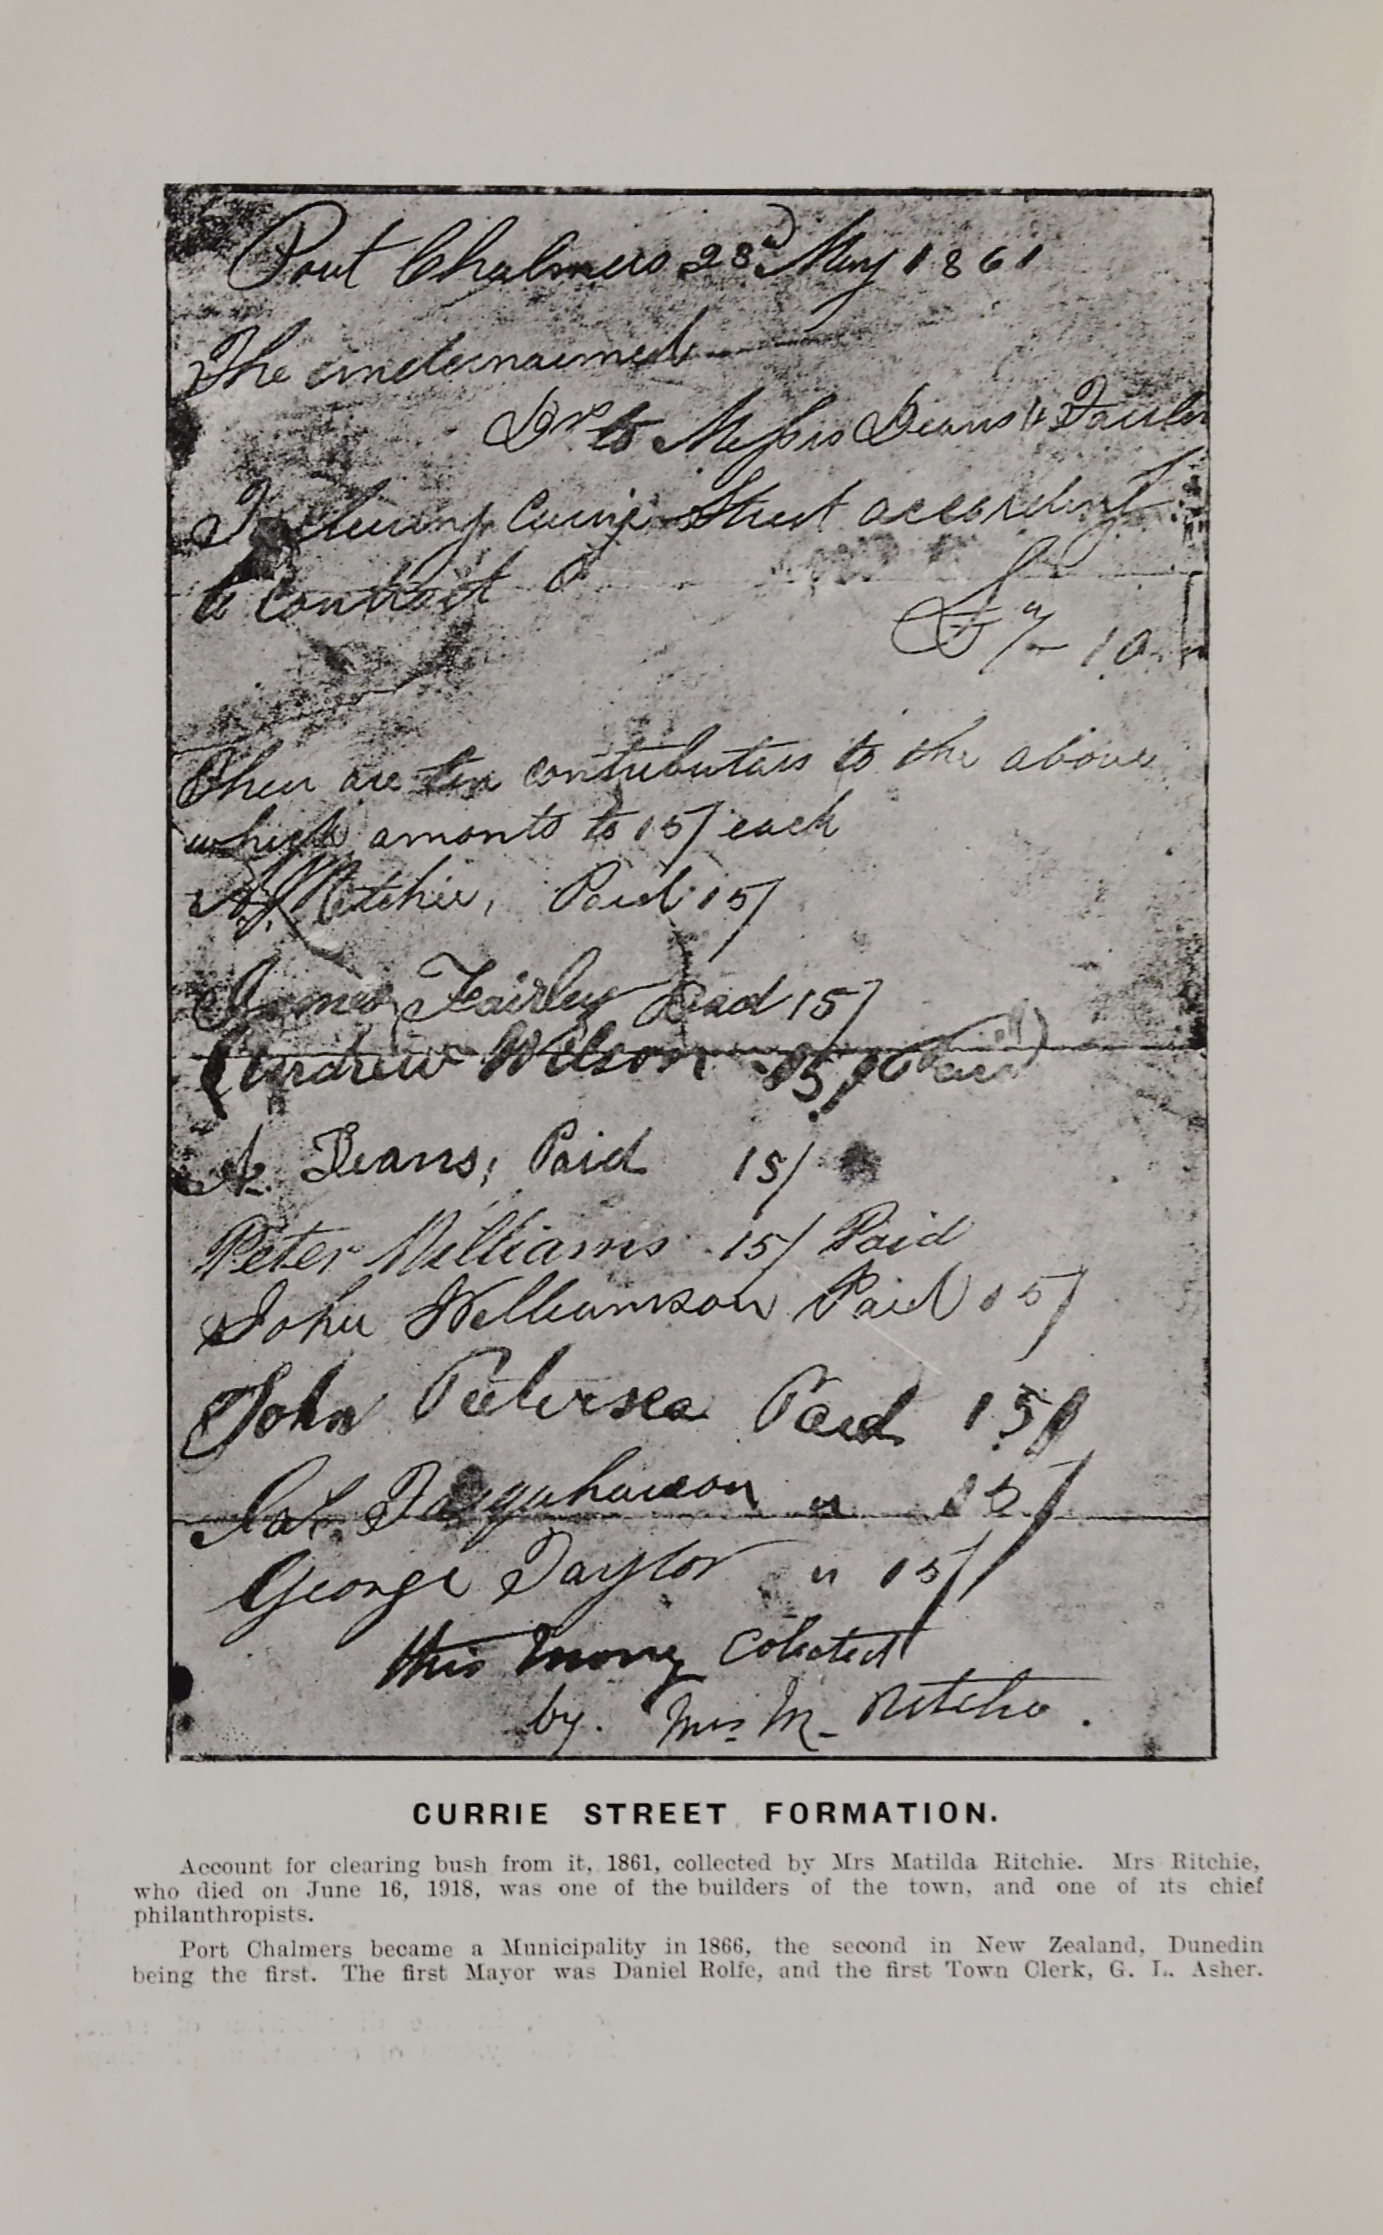 Port Chalmers 23d May 1861
The undernamed
Drs to Messrs Deans &
To Currie Street according
to contract
£7 " 10
Their are ten contributars to the above
which amonts to 15/ each
A. Ritchie, Paid 15/
James Fairley Paid 15/
Andrew Wilson 15/ Paid
A. Deans; Paid 15/
Peter Williams 15/ Paid
John Williamson Paid 15/
John Paid 15/
" 15/
George Taylor " 15/
this mony Colected
by. Mrs M. Ritchie.
CURRIE STREET FORMATION.
Account for clearing bush from it, 1861, collected by Mrs Matilda Ritchie. Mrs Ritchie,
who died on June 16, 1918, was one of the builders of the town, and one of its chief
philanthropists.
Port Chalmers became a Municipality in 1866, the second in New Zealand, Dunedin
being the first. The first Mayor was Daniel Rolfe, and the first Town Clerk, G. L. Asher.